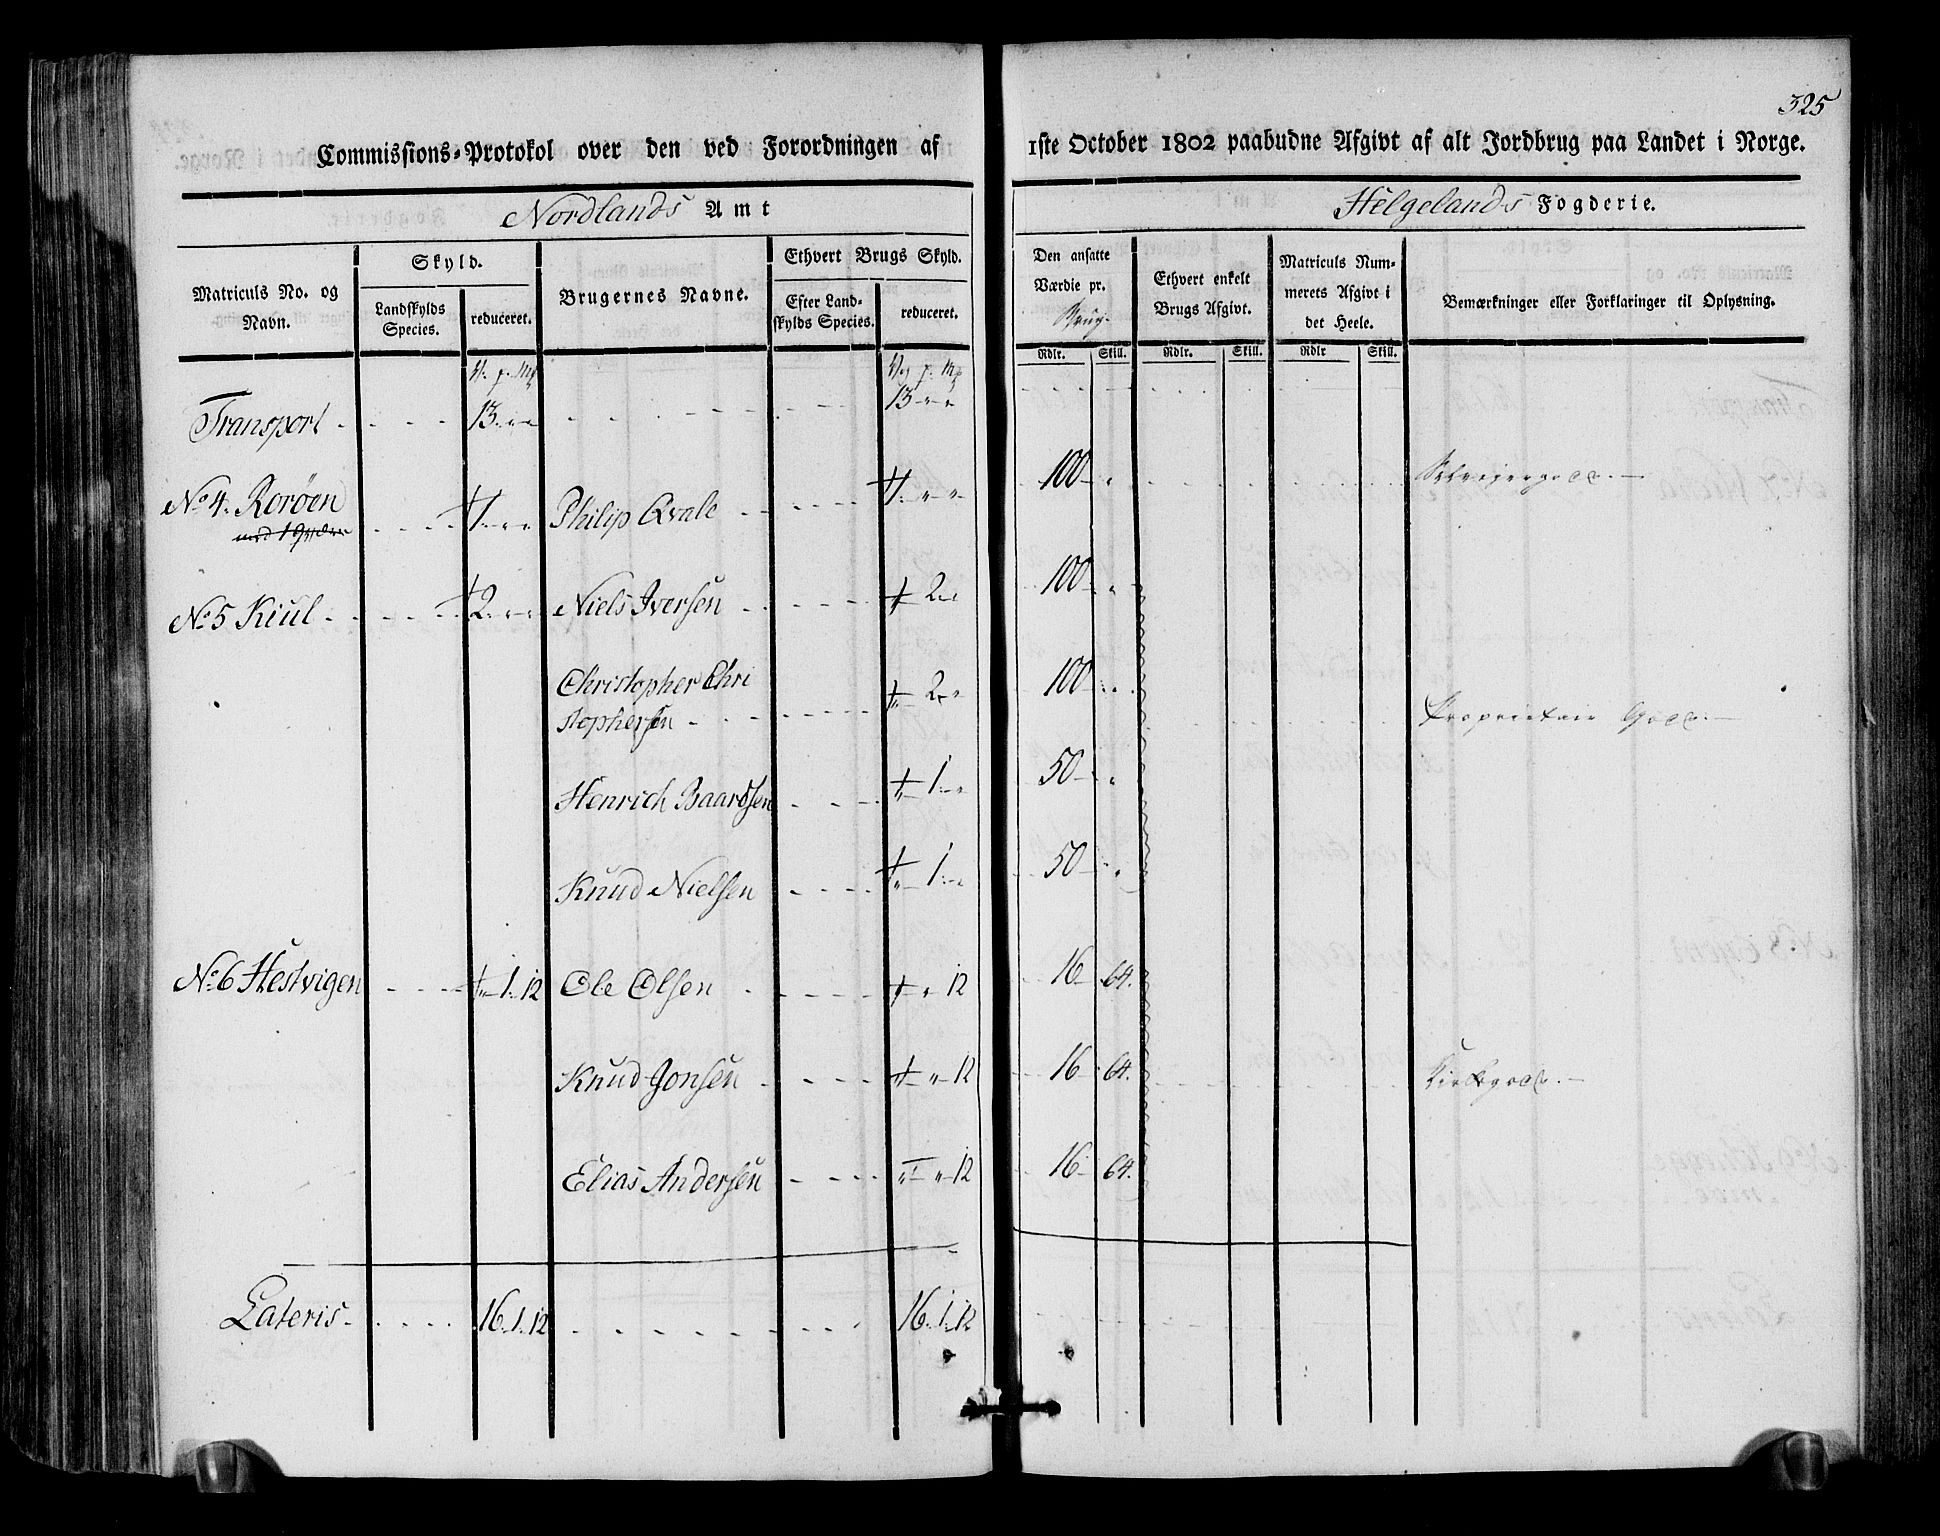 325
Commissions-Protokol over den ved Forordningen af 1ste October 1802 paabudne Afgivt af alt Jordbrug paa Landet i Norge.
Nordlands Amt
Helgelands Fogderie.
Matriculs No. og Navn.
Skyld.
Landskylds Species.
reduceret.
Brugernes Navne.
Ethvert Brugs Skyld.
Efter Landskylds Species.
reduceret.
Den ansatte Værdie pr. Brug.
Rdlr. Skill.
Ethvert enkelt Brugs Afgivt.
Rdlr. Skill.
Matriculs Nummerets Afgivt i det Heele.
Rdlr Skill.
Bemærkninger eller Forklaringer til Oplysning.
Transport 13 13
No. 4. Rorøen 1 Philip Qvale 1 100 Selveiergods
No. 5 Kiul 2 Niels Iversen 2 100
Christopher Chri
stophersen 2 100 Proprietair Gods
Henrich Baardsen 1 50
Knud Nielsen 1 50
No. 6 Hestvigen 1. 12 Ole Olsen 12 16 64.
Knud Jonsen 12 16 64. Kirkegods
Elias Andersen 12 16 64.
Lateris 16. 1. 12 16. 1. 12